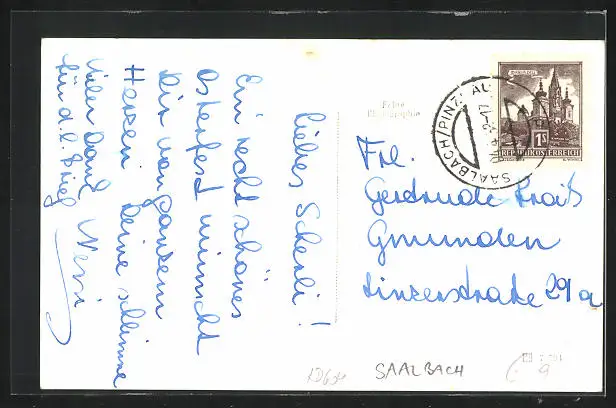 Liebes Scherli!
Ein recht schönes
Osterfest wünscht
Dir von ganzem
Herzen Deine schlimme
Nevi
Vielen Dank
für d. l. Brief
Echte
Photographie
SAALBACH/PINZGAU
MARIAZELL
1S
REPUBLIK ÖSTERREICH
Frl.
Gertrude
Gmunden
Linzerstraße 29a
SAALBACH
9